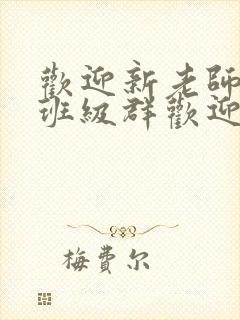 歡迎新老師
班級群歡迎
梅費尔